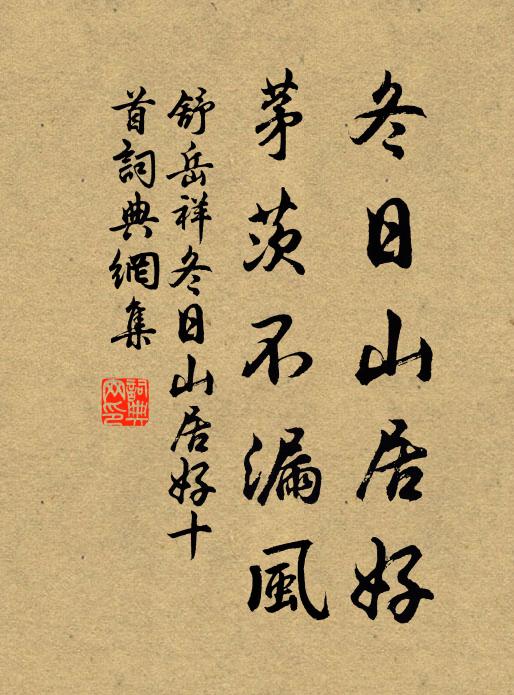 冬日山居好
茅茨不漏風
舒岳祥冬日山居好十
首詞典網集
詞典
网印